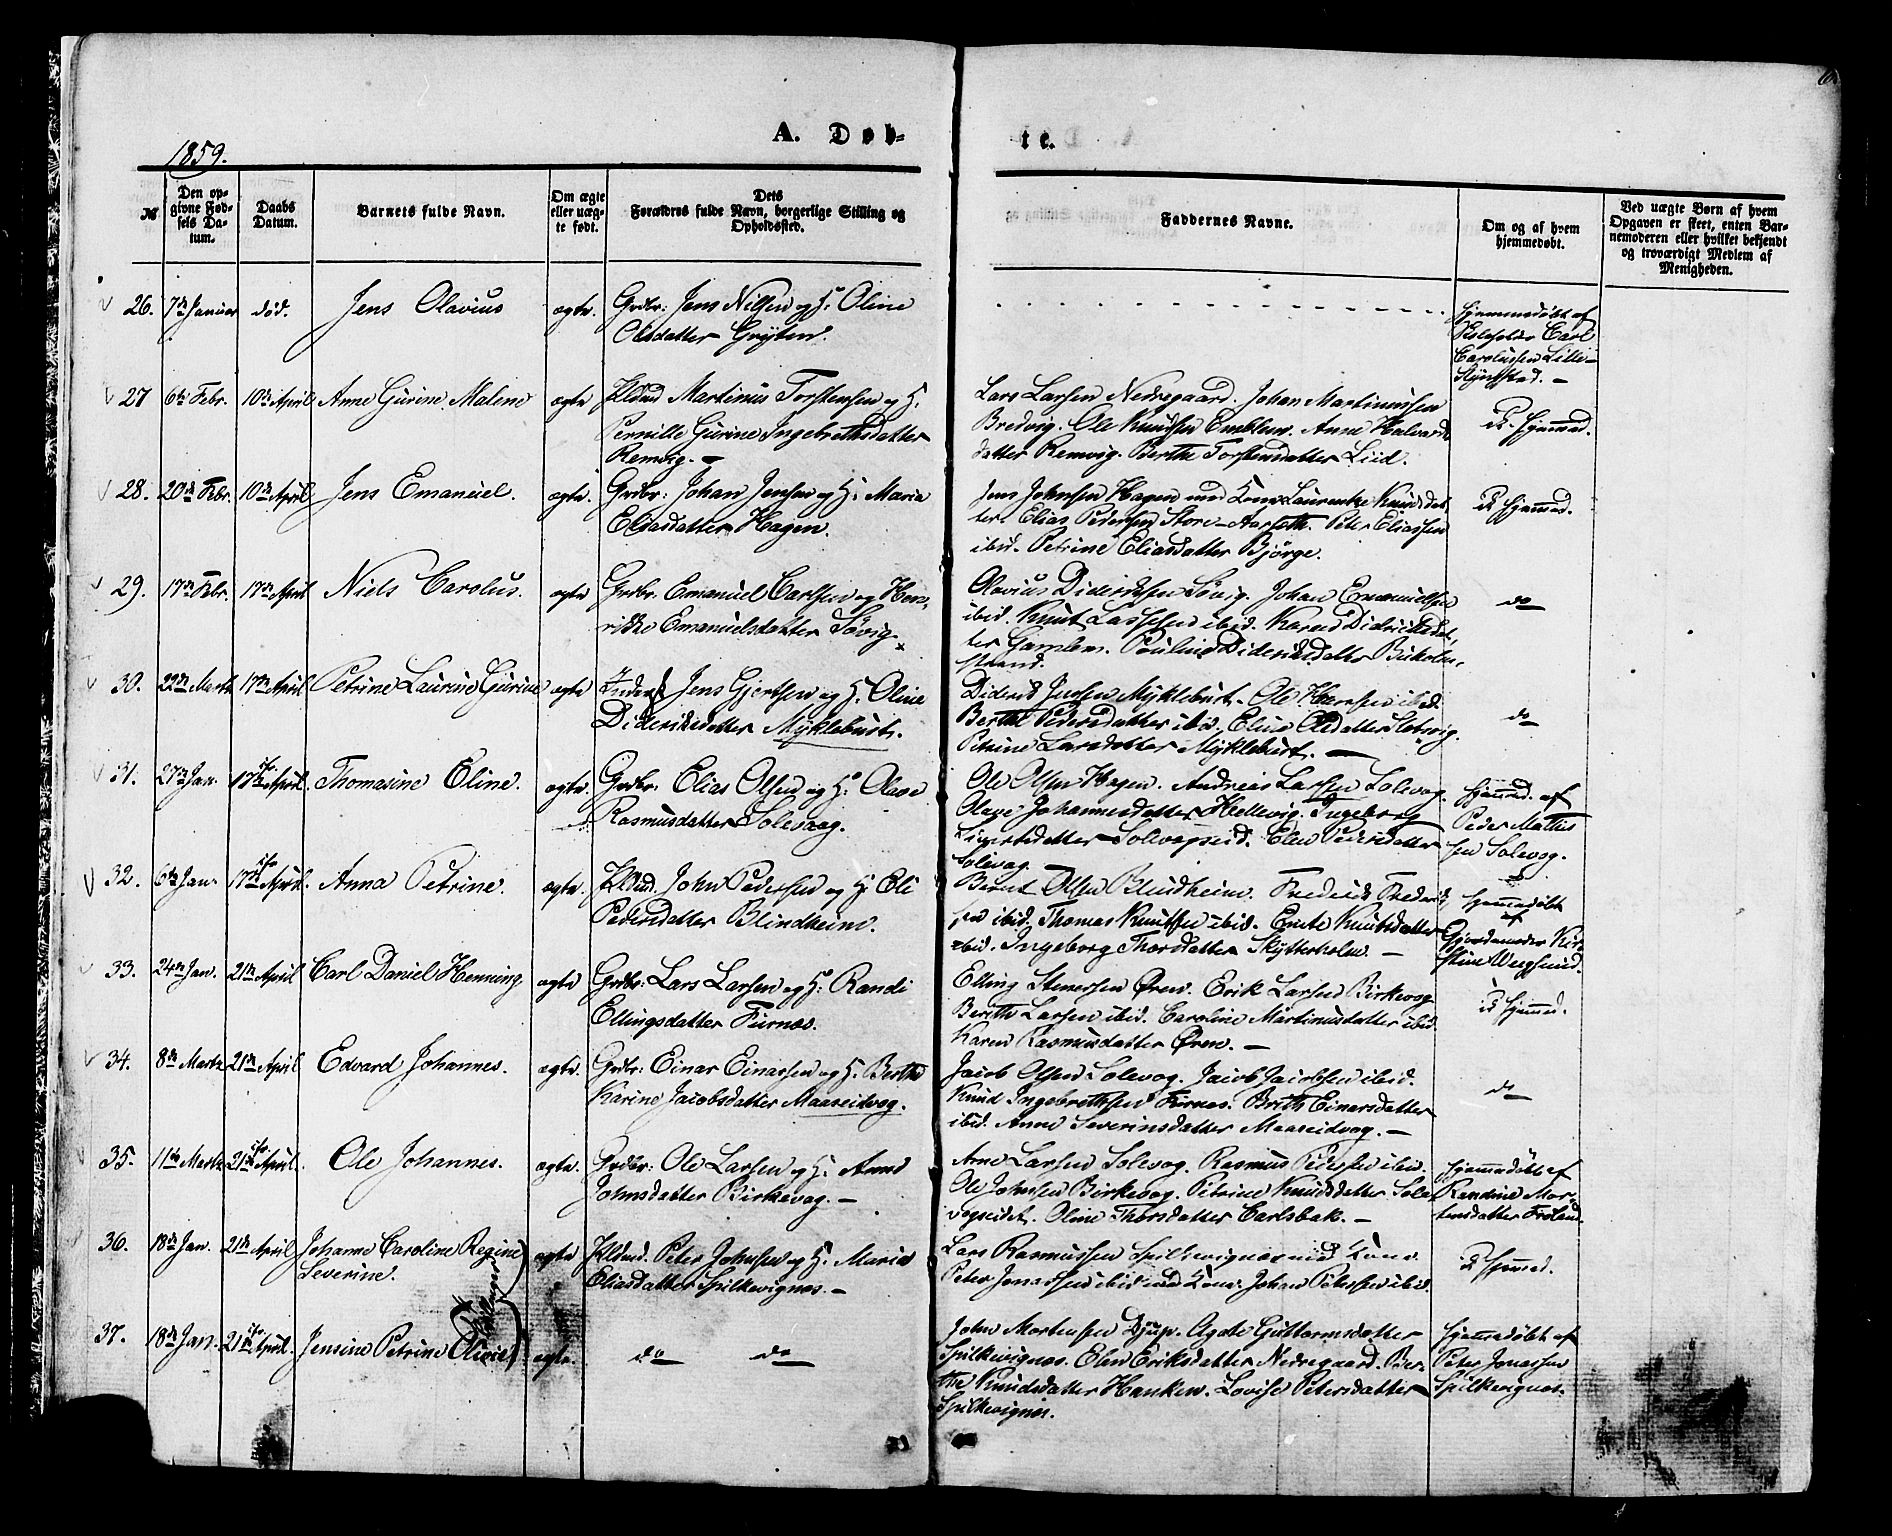 1859.
A. Døb-
te.
№
Den op-
givne Fød-
sels Da-
tum.
Daabs
Datum.
Barnets fulde Navn.
Om ægte
eller uæg-
te født.
Dets
Forældres fulde Navn, borgerlige Stilling og
Opholdssted.
Faddernes Navne.
Om og af hvem
hjemmedøbt.
Ved uægte Børn af hvem
Opgaven er skeet, enten Bar-
nemoderen eller hvilket bekjendt
og troværdigt Medlem af
Menigheden.
26. 7de Januar død. Jens Olavius ægte. Grdbr: Jens Nilsen og H. Oline
Olsdatter Gryten.
Hjemmedøbt af
Carl
Carolussen Lille-
27 6te Febr. 10de April Anne Gurine Malene ægte Martinus Torstensen og H.
Pernille Gurine Ingebrethsdatter
Remvig. -
Lars Larsen Nedregaard. Johan Martinussen
Bredvig. Ole Knudsen Emblem. Anne Halvards
datter Remvig. Berthe Torstensdatter Liid.
Ei Hjemmed.
28. 20de Febr. 10de April Jens Emanuel. ægte. Grdbr: Johan Jensen og H. Maria
Eliasdatter Hagen.
Jens Johnsen Hagen med Kone Laurentze Knudsdat
ter. Elias Pedersen Store-Aarseth. Peter Eliassen
ibid. Petrine Eliasdatter Bjørge.
Ei Hjemmed.
29. 17de Febr. 17de April Niels Carolus. ægte Grdbr. Emanuel Carlsen og Hen-
rikke Emanuelsdatter Søvig.
Olavius Dideriksen Søvig. Johan Emanuelsen
ibid. Knut Lassesen ibid. Karen Didriksdat-
ter Gamlem. Pouline Dideriksdatter
strand.
do
30. 29de Martz 17de April Petrine Laurine Gurine ægte Inderst Jens Gjertsen og H. Oline
Dideriksdatter Myklebust.
Diderik Jensen Myklebust. Ole Hansen ibid.
Berthe Pedersdatter ibid. Oldatter Sletvig.
Petrine Larsdatter Myklebust. -
do
31. 27de Jan. 17de April. Thomasine Eline. ægte. Grdbr: Elias Olsen og H. Olave
Rasmusdatter Solevaag.
Ole Olsen Hagen. Andreas Larsen Solevog.
Olave Johannesdatter Hellevig. Ingeborg
Sivertsdatter Solevogseid. Elen Pedersdatter
Solevog.
Hjemmed. af
Peder Mathis
sen Solevog.
32. 6te Jan. 17de April. Anna Petrine. ægte. John Pedersen og H. Eli
Pedersdatter Blindheim.
Bernt Olsen Blindheim. Frederik Frederik
sen ibid. Thomas Knutsen ibid. Knutsdatter
ibid. Ingeborg Thorsdatter Skytterholm. -
Hjemmedøbt
af
Gjordemoder Kir
stine Vegsund.
33. 24de Jan. 21de April Carl Daniel Henning ægte Grdbr: Lars Larsen og H. Randi
Ellingsdatter Furnæs.
Elling Stenersen Øren. Erik Larsen Birkevog
Berithe Larsen ibid. Caroline Martinusdatter ibid.
Karen Rasmusdatter Øren. -
Ei Hjemmed.
34. 8de Martz 21de April Edvard Johannes. ægte. Grdbr: Einar Einarsen og H. Berthe
Karine Jacobsdatter Maaseidvog.
Jacob Olsen Solevog. Jacob Jacobsen ibid.
Knud Ingebrethsen Furnes. Brith Einarsdatter
ibid. Anne Severinsdatter Maaseidvog. -
do
35. 11te Martz 21de April. Ole Johannes. ægte. Grdbr: Ole Larsen og H. Anne
Johnsdatter Birkevog. -
Arne Larsen Solevog. Rasmus Pedersen ibid.
Ole Johnsen Birkevog. Petrine Knudsdatter Sole
vogseidet. Oline Thorsdatter Carlsbak. -
Hjemmedøbt af
Randine Mor-
tensdatter Frøland.
36. 18de Jan. 21de April Johanne Caroline Regine
Severine. ægte Peter Johnsen og H. Maria
Eliasdatter Spilkevignæs. -
Lars Rasmussen Spilkevignæs med Kone.
Peter Jonassen ibid med Kone. Johan Petersen ibid.
Ei Hjemmed.
Tvillinger
37. 18de Jan. 21de April. Jensine Petrine Olivie ægte. do do
John Mortensen Djup. Agate Guttormsdatter
Spilkevignæs. Elen Eriksdatter Nedregaard. Ber-
the Knudsdatter Hanken. Lovise Petersdatter
Spilkevignæs.
Hjemmedøbt af
Peter Jonassen
Spilkevignæs.